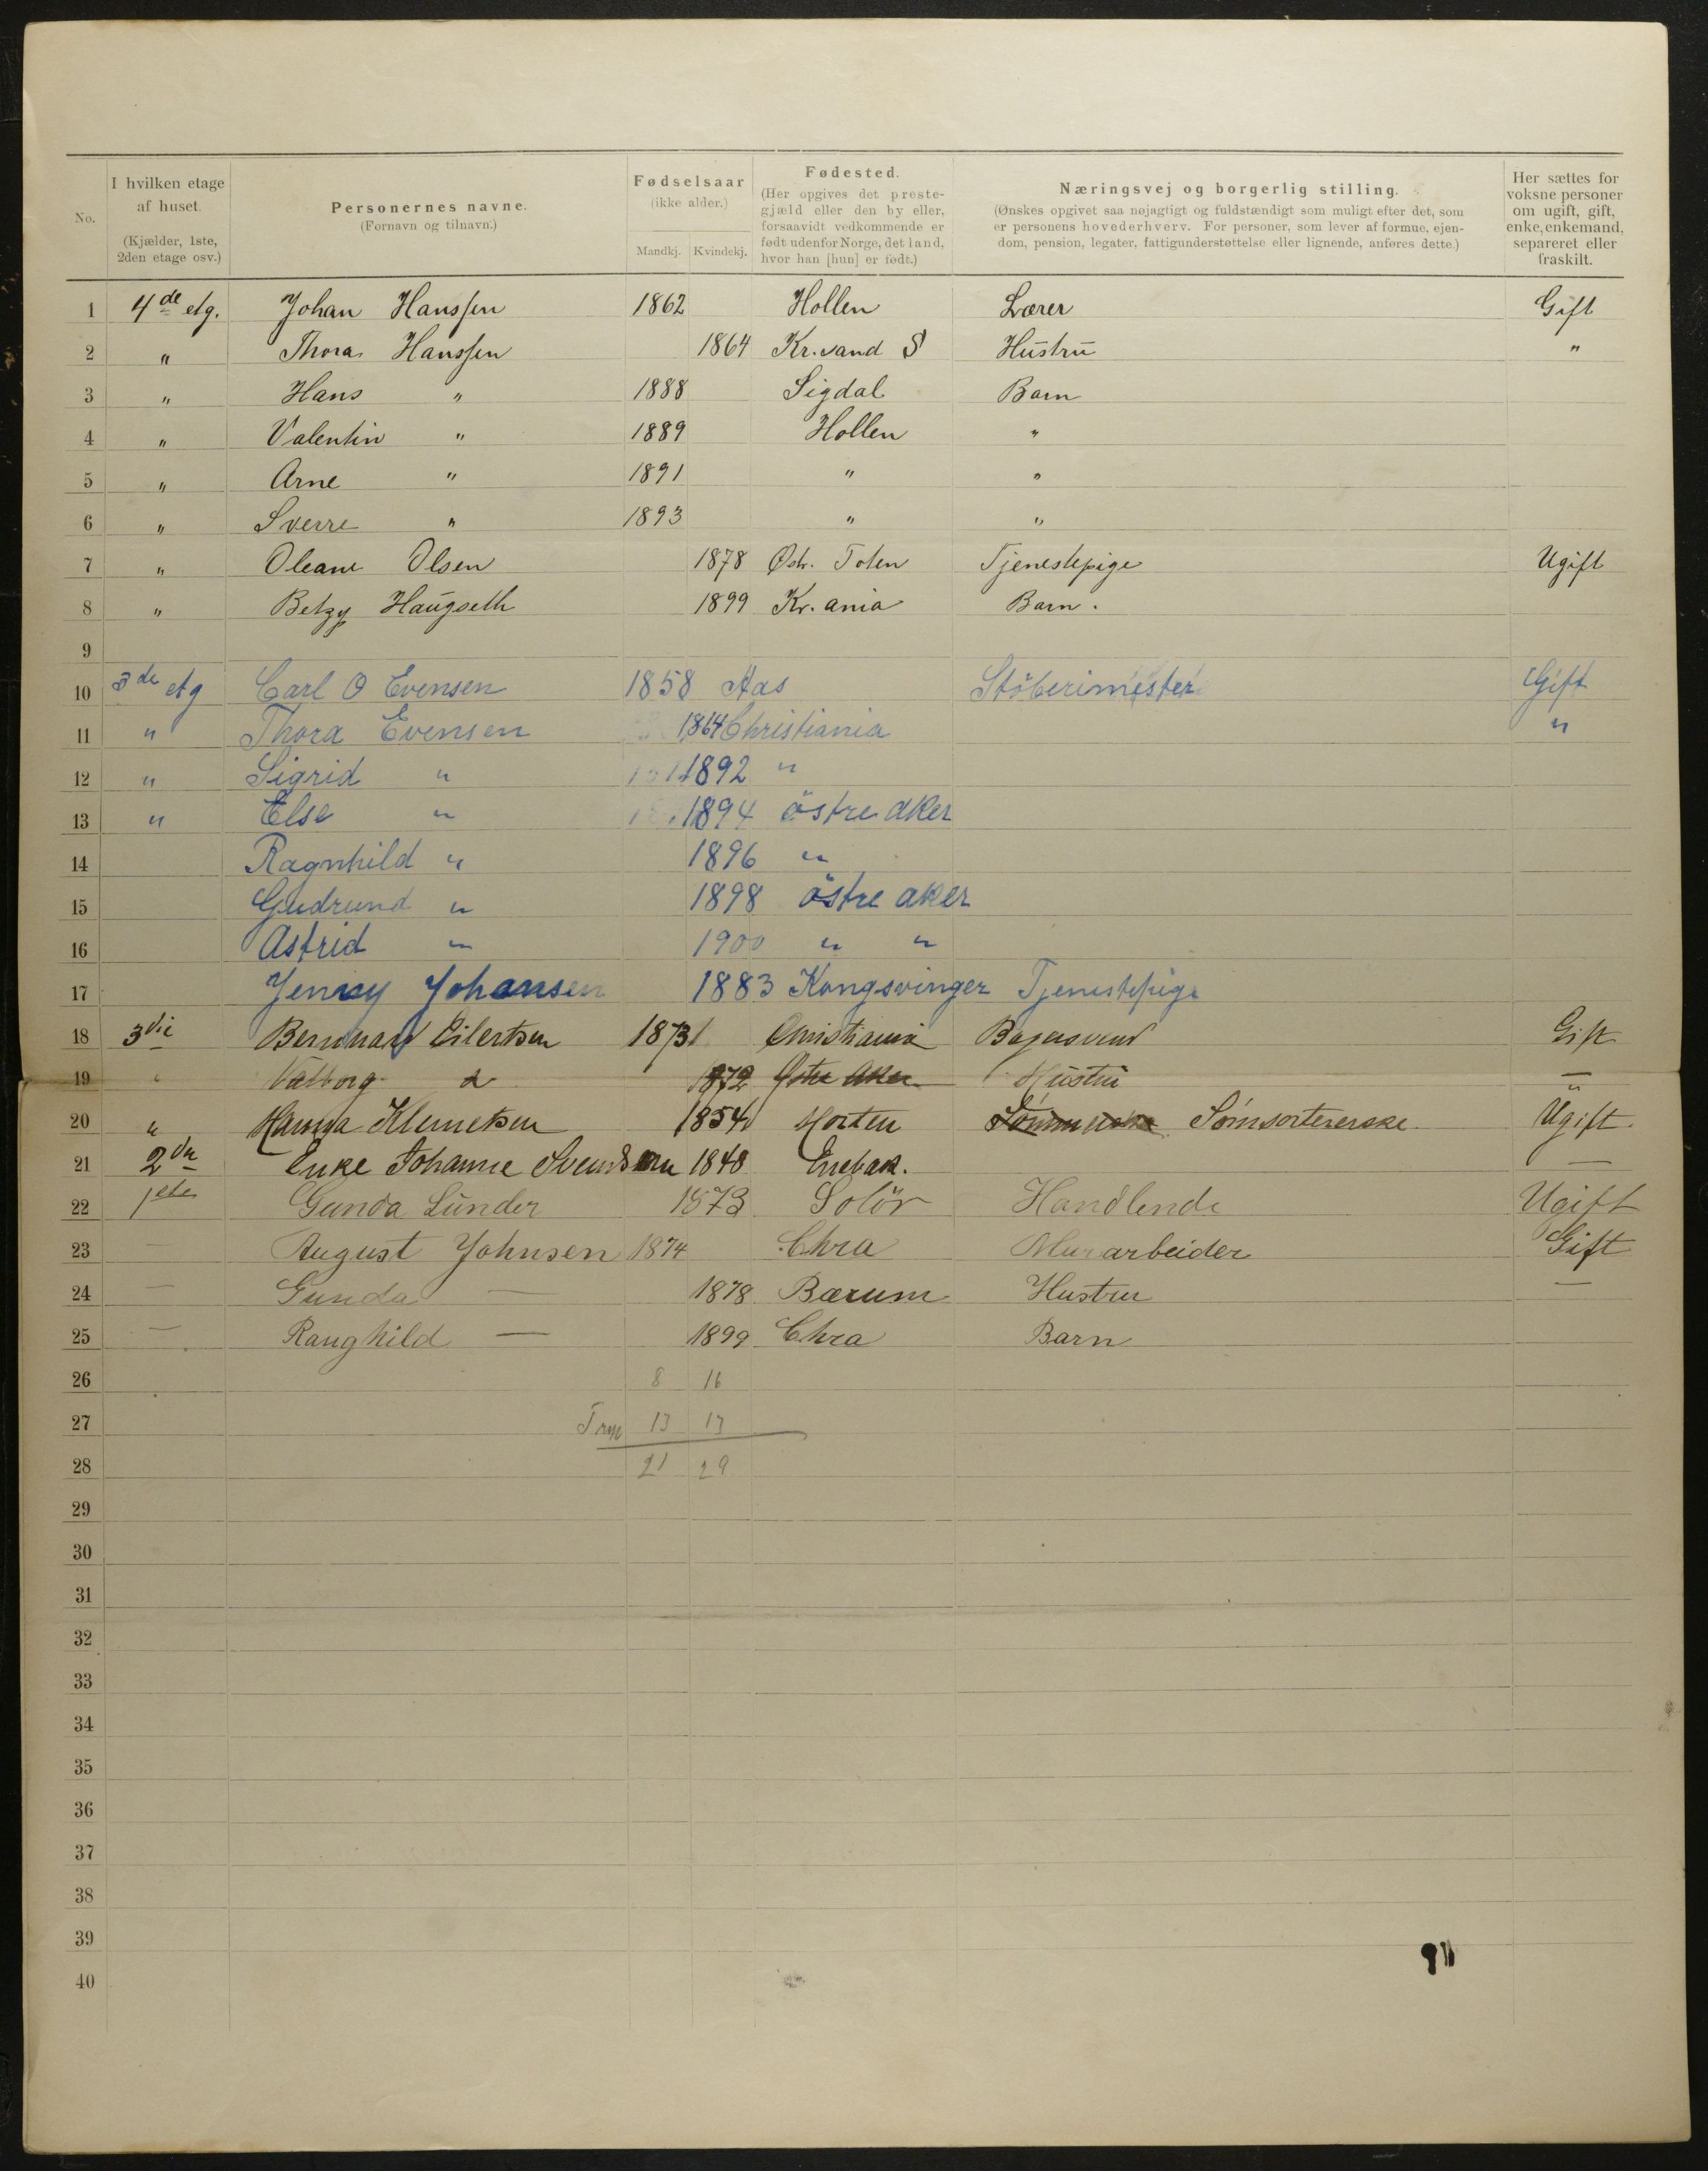 No.
I hvilken etage af huset. (Kjælder, 1ste, 2den etage osv.)
Personernes navne. (Fornavn og tilnavn.)
Fødselsaar (ikke alder.) Mandkj. Kvindekj.
Fødested. (Her opgives det prestegjæld eller den by eller, forsaavidt vedkommende er født udenfor Norge, det land, hvor han [hun] er født.)
Næringsvej og borgerlig stilling. (Ønskes opgivet saa nøjagtigt og fuldstændigt som muligt efter det, som er personens hovederhverv. For personer, som lever af formue, ejendom, pension, legater, fattigunderstøttelse eller lignende, anføres dette.)
Her sættes for voksne personer om ugift, gift, enke, enkemand, separeret eller fraskilt.
1 4de etg. Johan Hanssen 1862 Hollen Lærer Gift
2 " Thora Hanssen 1864 Kr.sand S Hustru "
3 " Hans " 1888 Sigdal Barn
4 " Valentin " 1889 Hollen "
5 " Arne " 1891 " "
6 " Sverre " 1893 " "
7 " Oleane Olsen 1878 Østr. Toten Tjenestepige Ugift
8 " Betzy Haugseth 1899 Kr.ania Barn.
9
10 3de etg Carl O Evensen 1858 Aas Stöberimester Gift
11 " Thora Evensen 1864 Christiania "
12 " Sigrid " 1892 "
13 " Else " 1894 östre aker
14 Ragnhild " 1896 "
15 Gudrund " 1898 östre aker
16 Astrid " 1900 " "
17 Jenny Johansen 1883 Kongsvinger Tjenestepige
18 3die Bernhard Eilertsen 1873 Christiania Bagersvend Gift
19 " Valborg do 1872 Østre Aker Hustru —
20 " Hanna Klemetsen 1854 Horten Sömsortererske Ugift.
21 2den Enke Johanne Svendsen 1848 Enebak. —
22 1ste Gunda Lunder 1873 Solör Handlende Ugift
23 — August Johnsen 1874 Chra Murarbeider Gift
24 — Gunda — 1878 Bærum Hustru —
25 — Ranghild — 1899 Chra Barn
26 8 16
27 13 13
28 21 29
29
30
31
32
33
34
35
36
37
38
39
40